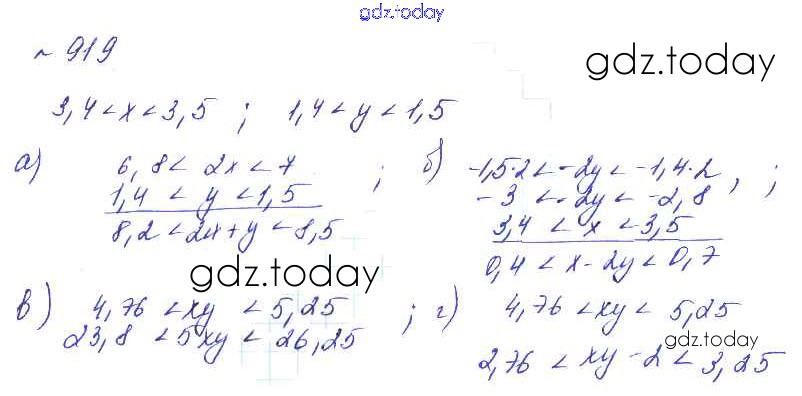 gdz.today
№ 919
gdz.today
3,4 < x < 3,5 ; 1,4 < y < 1,5
а) 6,8 < 2x < 7 ;
1,4 < y < 1,5
8,2 < 2x + y < 8,5
б) -1,5·2 < -2y < -1,4·2 ;
-3 < -2y < -2,8 ,
3,4 < x < 3,5
0,4 < x - 2y < 0,7
gdz.today
в) 4,76 < xy < 5,25 ;
23,8 < 5xy < 26,25
г) 4,76 < xy < 5,25
gdz.today
2,76 < xy - 2 < 3,25